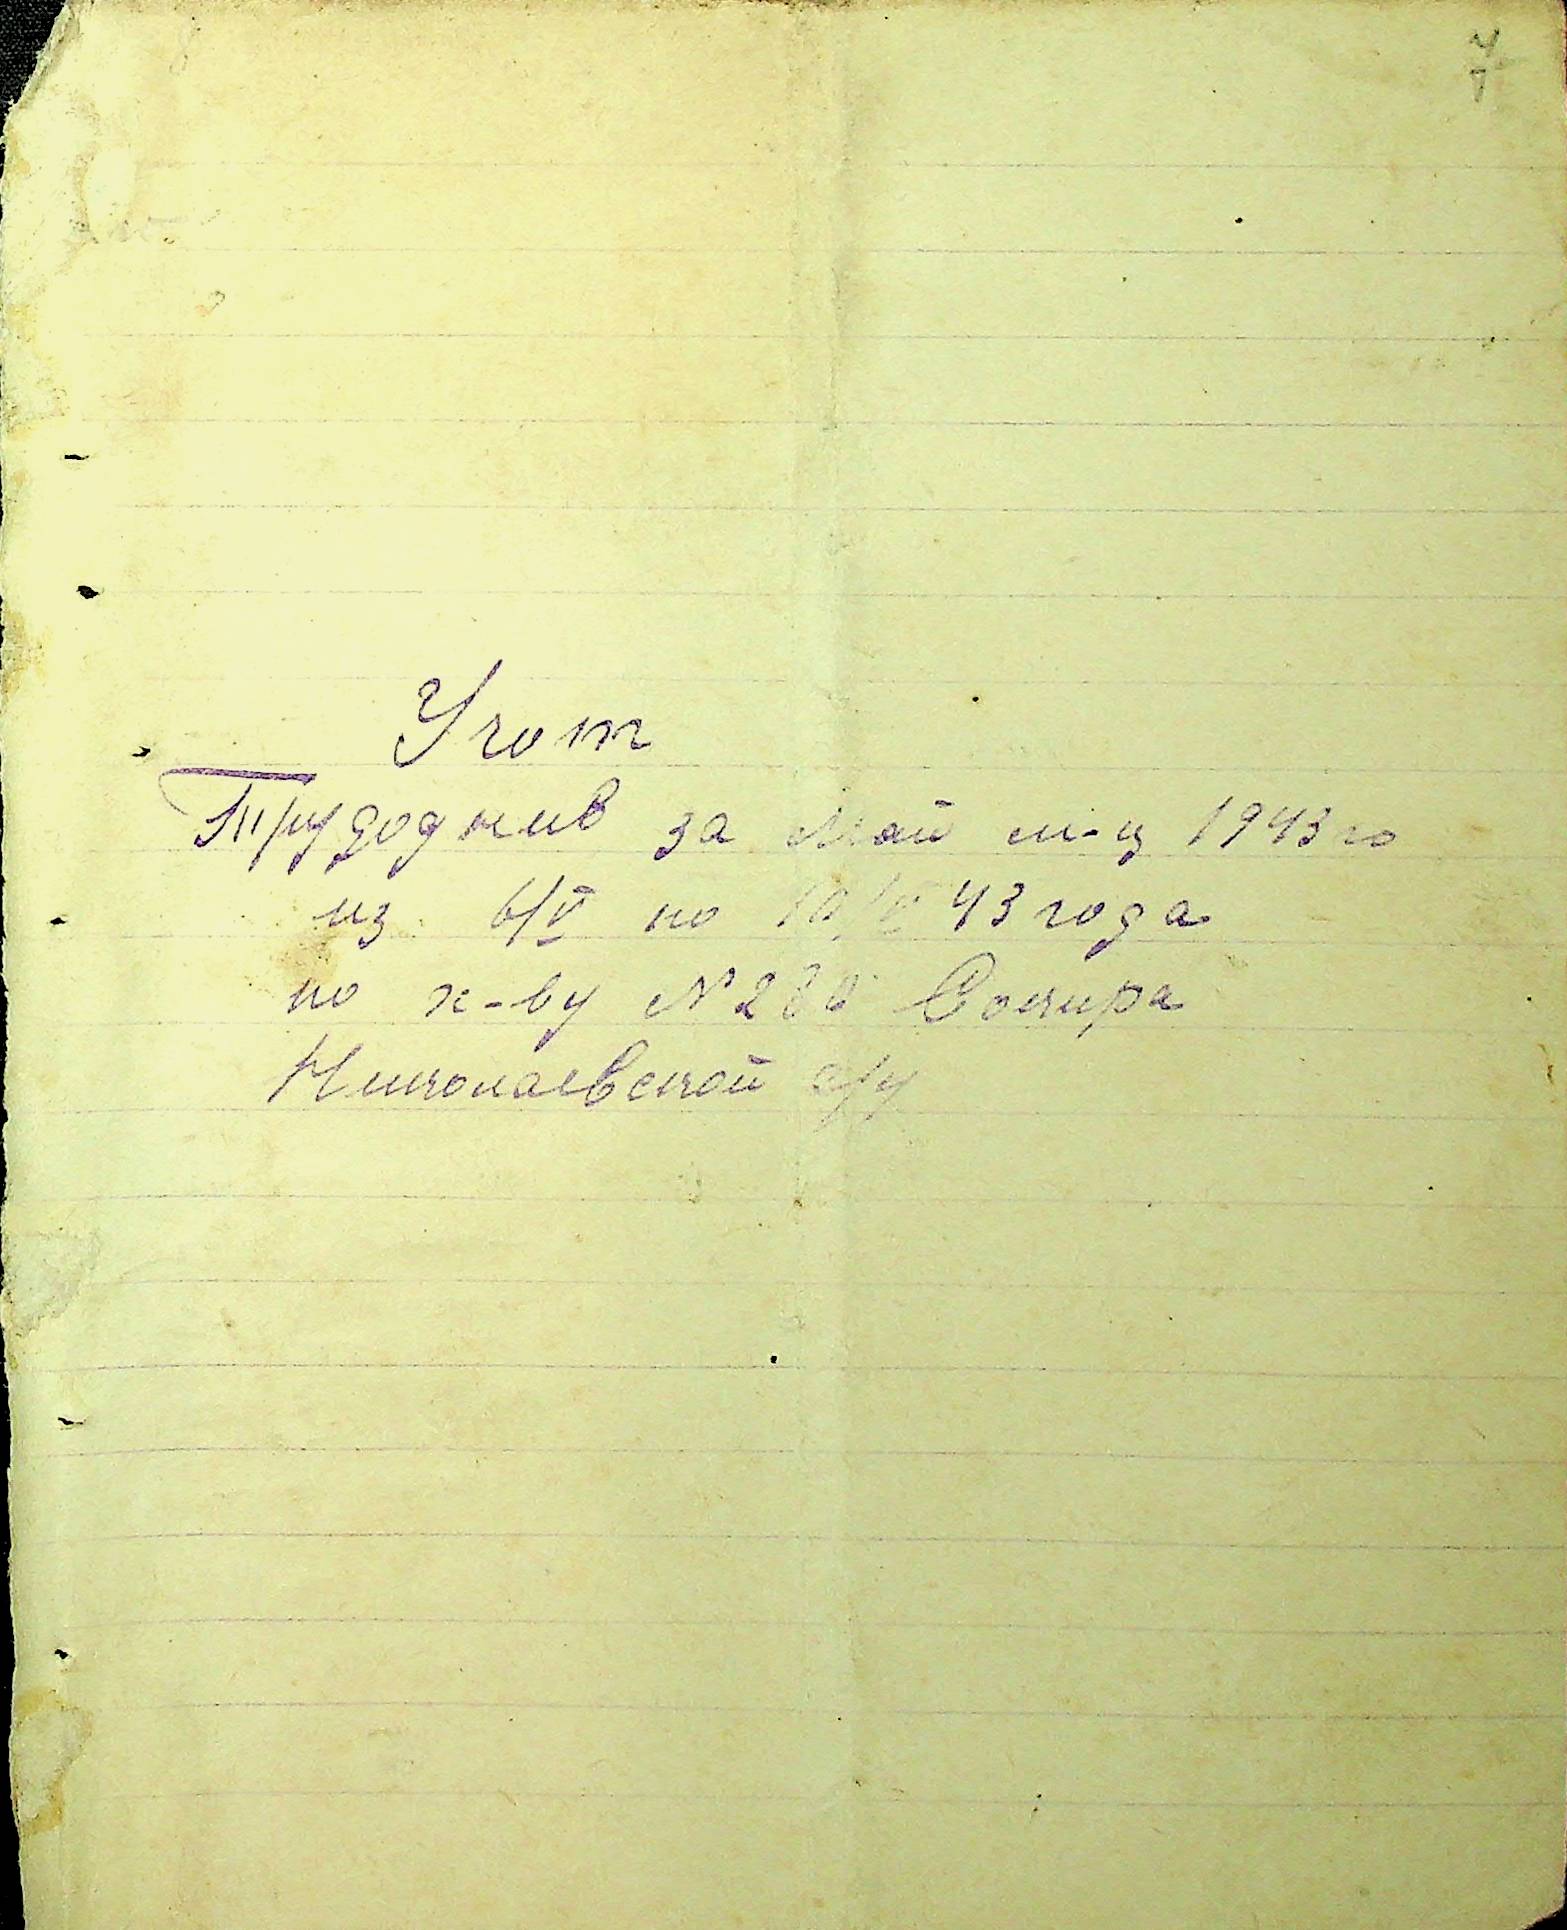 Учот
Трудоднив за Май м-ц 1943 го
из 6/V по 10/V 43 года
по х-ву № 280
Николаевской с/у